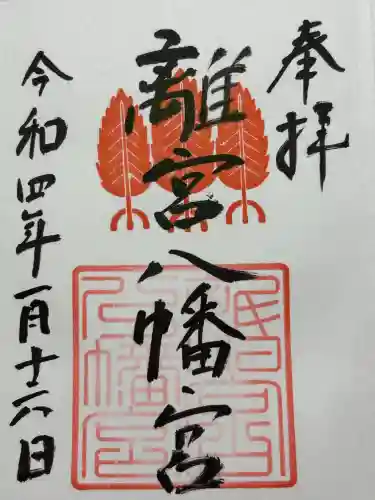 奉拝
離宮八幡宮
令和四年一月十六日